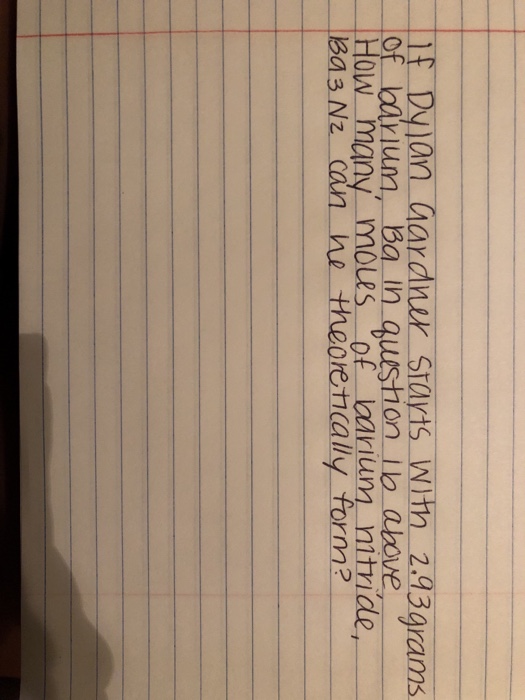 If Dylan Gardner starts with 2.93grams
of barium, Ba in question 1b above
How many, moles of barium nitride,
Ba3N2 can he theoretically form?